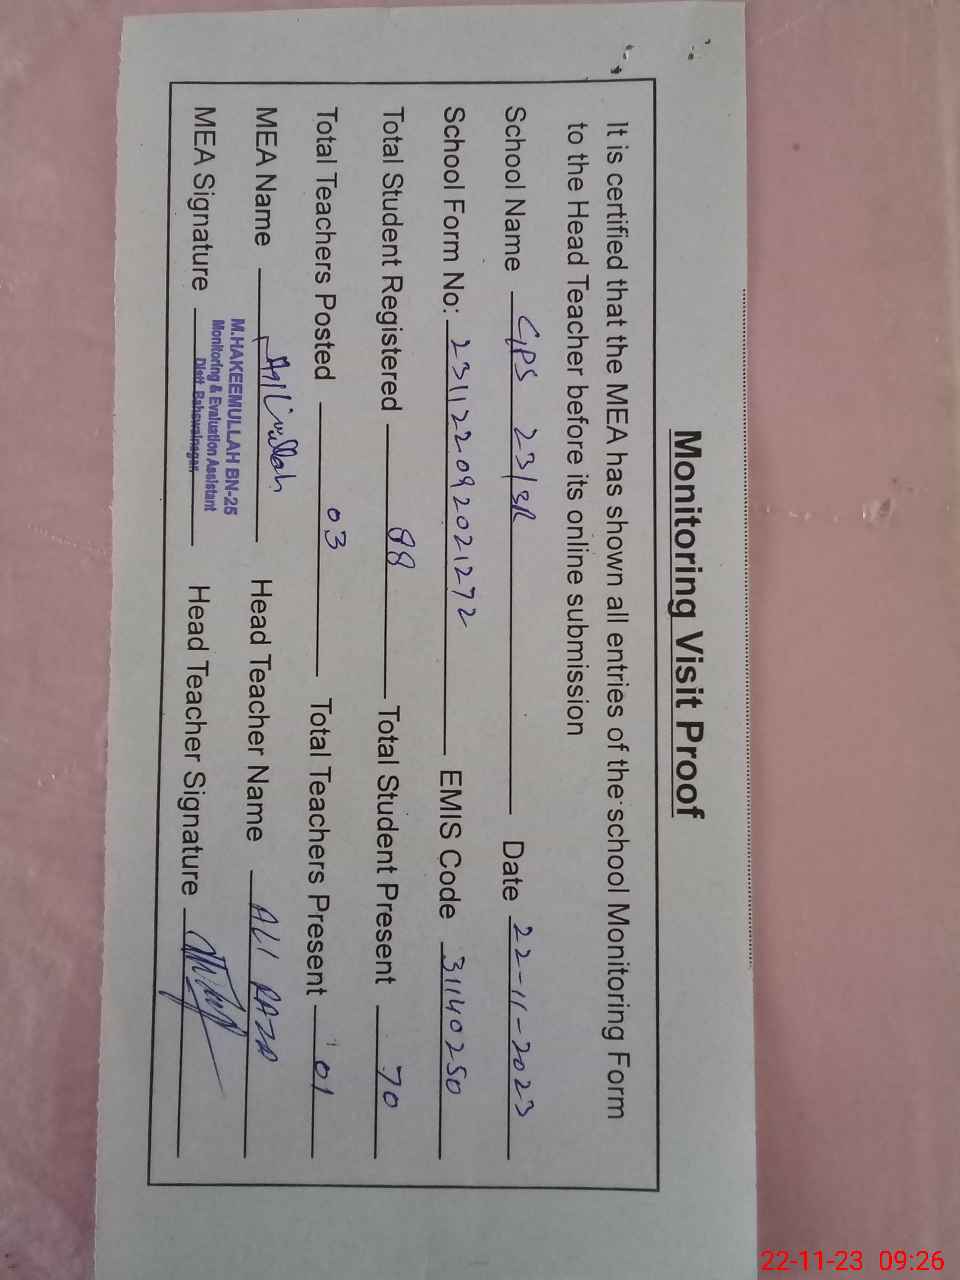 Monitoring Visit Proof
It is certified that the MEA has shown all entries of the school Monitoring Form
to the Head Teacher before its online submission
School Name GPS 23/3R Date 22-11-2023
School Form No: 231122092021272 EMIS Code 31140250
Total Student Registered 88 Total Student Present 70
Total Teachers Posted 03 Total Teachers Present 01
MEA Name Head Teacher Name ALI RAZA
M.HAKEEMULLAH BN-25
Monitoring & Evaluation Assistant
Distt. Bahawalnagar.
MEA Signature Head Teacher Signature
22-11-23 09:26